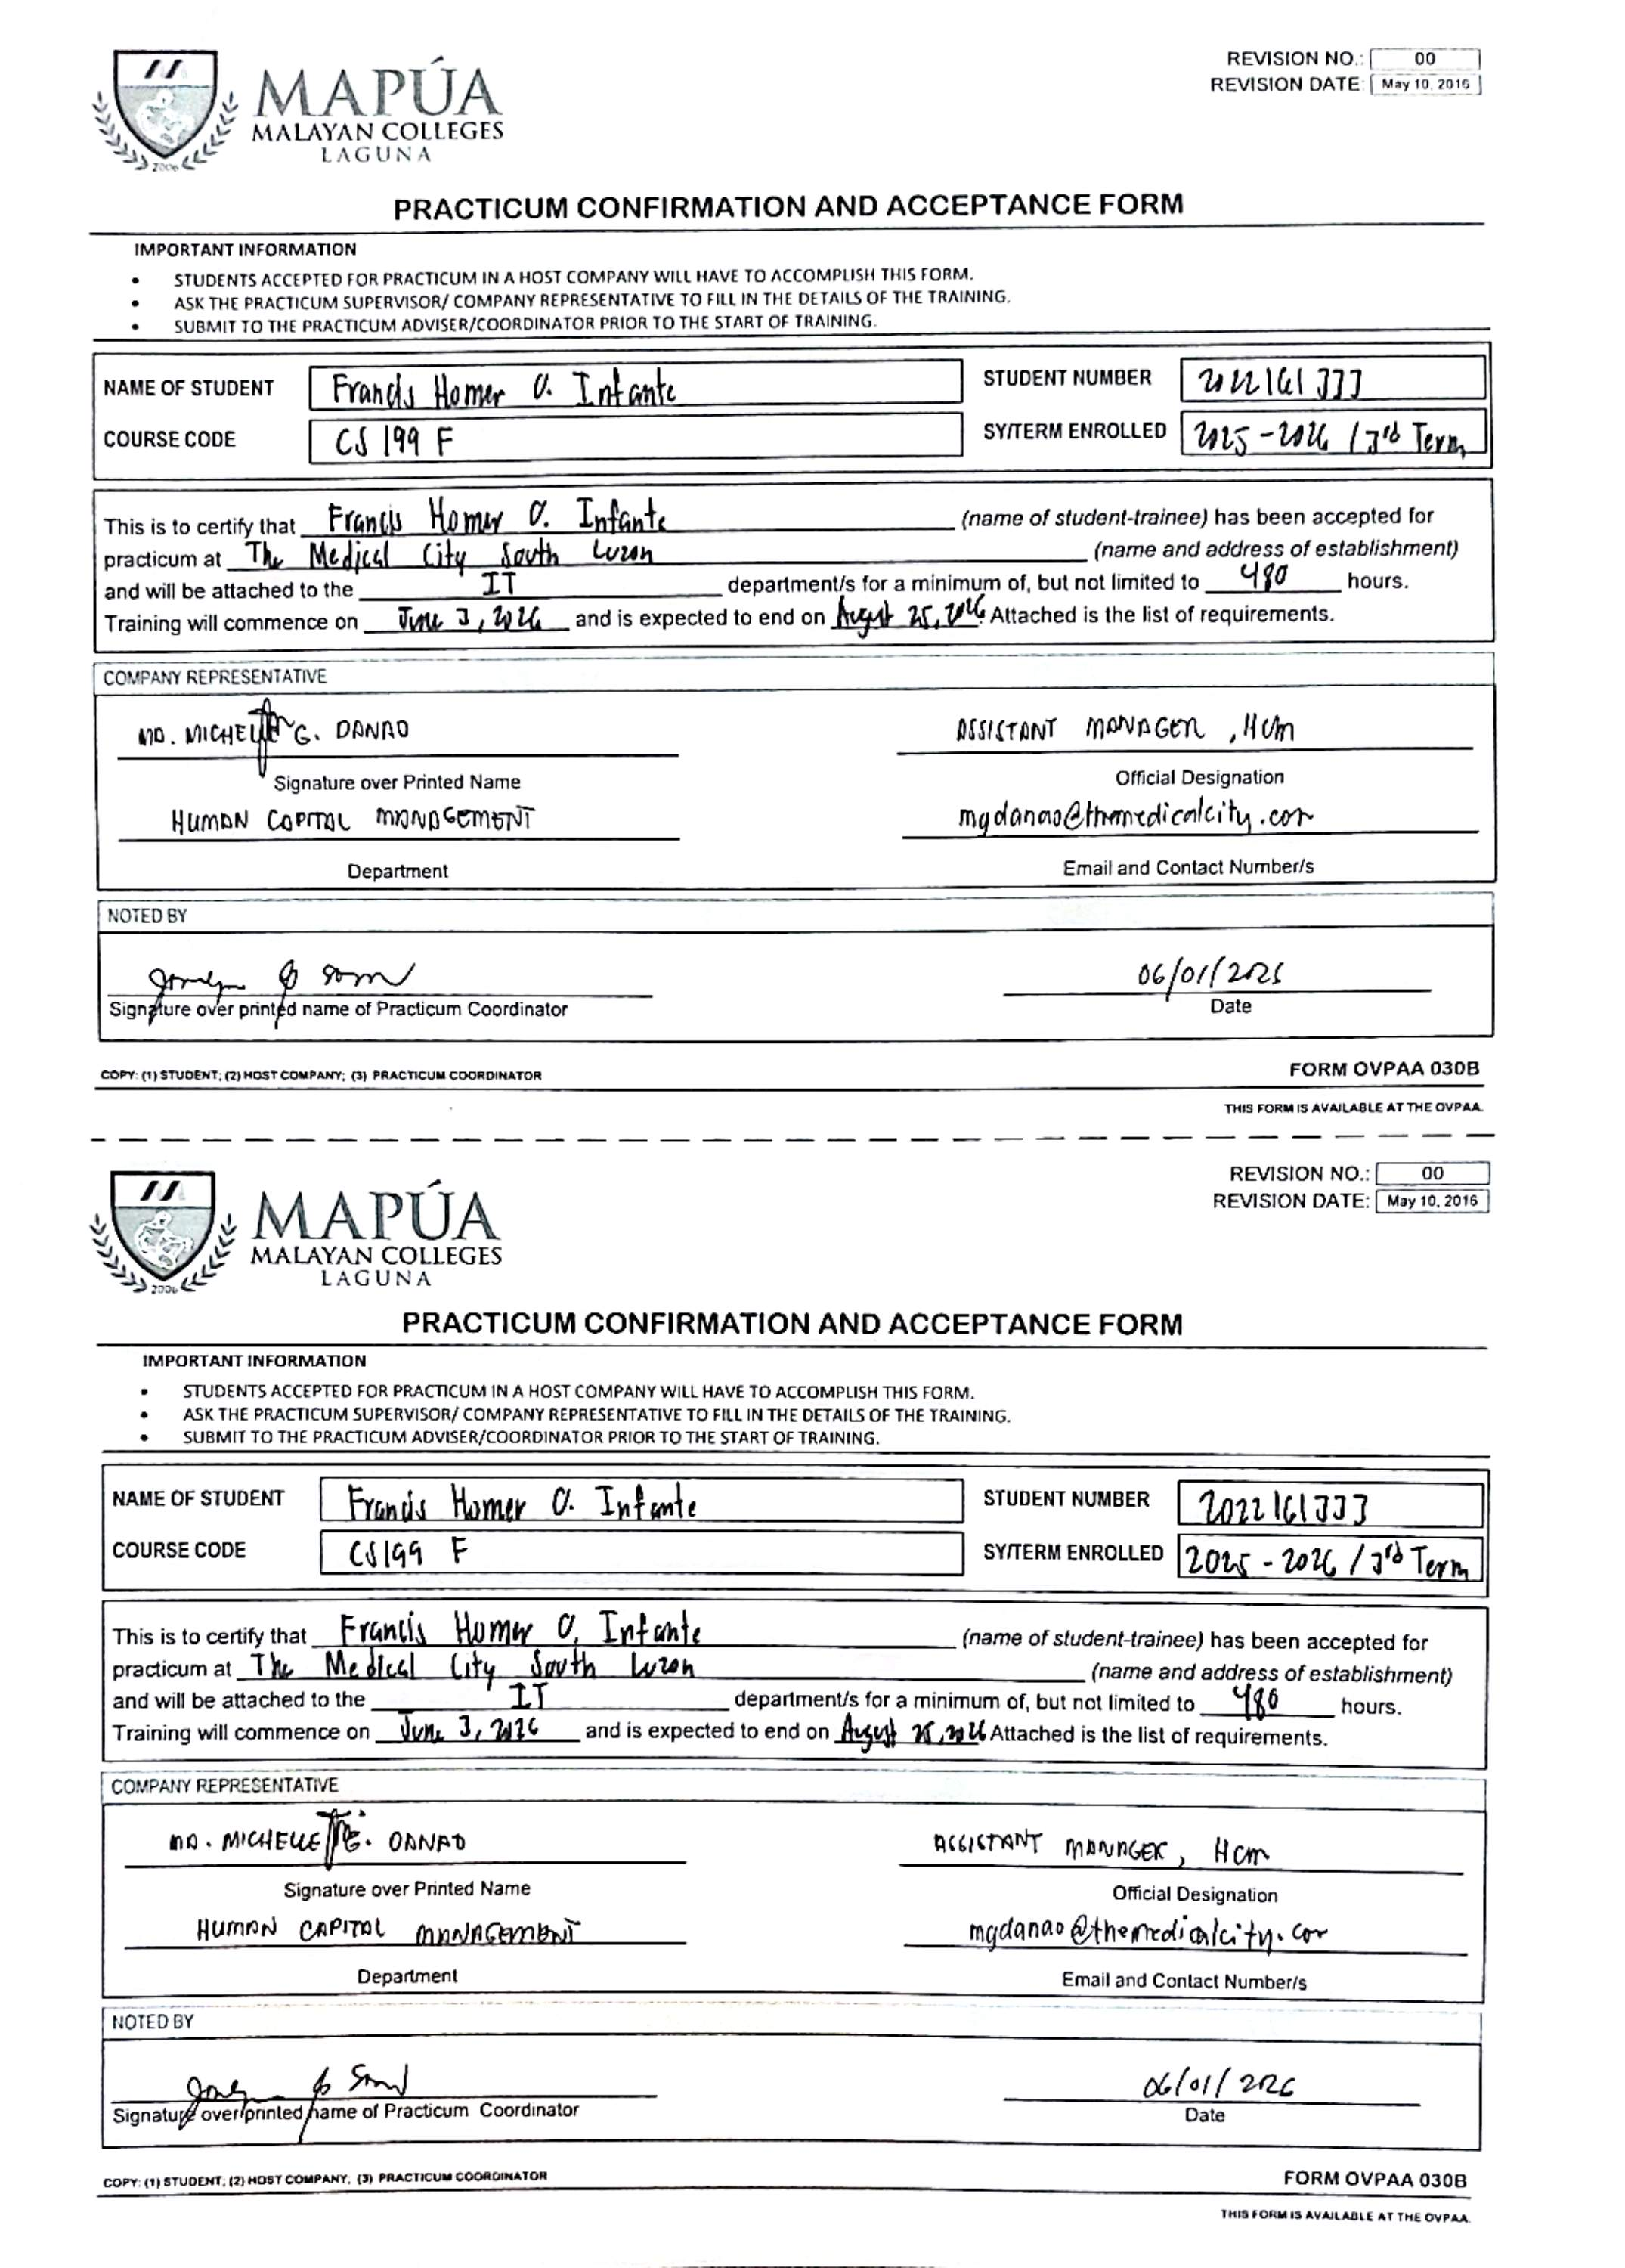 MAPÚA
MALAYAN COLLEGES
LAGUNA
2006
REVISION NO.: 00
REVISION DATE: May 10, 2016
PRACTICUM CONFIRMATION AND ACCEPTANCE FORM
IMPORTANT INFORMATION
• STUDENTS ACCEPTED FOR PRACTICUM IN A HOST COMPANY WILL HAVE TO ACCOMPLISH THIS FORM.
• ASK THE PRACTICUM SUPERVISOR/ COMPANY REPRESENTATIVE TO FILL IN THE DETAILS OF THE TRAINING.
• SUBMIT TO THE PRACTICUM ADVISER/COORDINATOR PRIOR TO THE START OF TRAINING.
NAME OF STUDENT Francis Homer O. Infante STUDENT NUMBER 2022161333
COURSE CODE CS 199 F SY/TERM ENROLLED 2025-2026 / 3rd Term
This is to certify that Francis Homer O. Infante (name of student-trainee) has been accepted for
practicum at The Medical City South Luzon (name and address of establishment)
and will be attached to the IT department/s for a minimum of, but not limited to 480 hours.
Training will commence on June 3, 2026 and is expected to end on August 25, 2026. Attached is the list of requirements.
COMPANY REPRESENTATIVE
MA. MICHELLE G. DANAO ASSISTANT MANAGER, HCM
Signature over Printed Name Official Designation
HUMAN CAPITAL MANAGEMENT mgdanao@themedicalcity.com
Department Email and Contact Number/s
NOTED BY
06/01/2026
Signature over printed name of Practicum Coordinator Date
COPY: (1) STUDENT; (2) HOST COMPANY; (3) PRACTICUM COORDINATOR FORM OVPAA 030B
THIS FORM IS AVAILABLE AT THE OVPAA.
MAPÚA
MALAYAN COLLEGES
LAGUNA
2006
REVISION NO.: 00
REVISION DATE: May 10, 2016
PRACTICUM CONFIRMATION AND ACCEPTANCE FORM
IMPORTANT INFORMATION
• STUDENTS ACCEPTED FOR PRACTICUM IN A HOST COMPANY WILL HAVE TO ACCOMPLISH THIS FORM.
• ASK THE PRACTICUM SUPERVISOR/ COMPANY REPRESENTATIVE TO FILL IN THE DETAILS OF THE TRAINING.
• SUBMIT TO THE PRACTICUM ADVISER/COORDINATOR PRIOR TO THE START OF TRAINING.
NAME OF STUDENT Francis Homer O. Infante STUDENT NUMBER 2022161333
COURSE CODE CS199 F SY/TERM ENROLLED 2025-2026 / 3rd Term
This is to certify that Francis Homer O. Infante (name of student-trainee) has been accepted for
practicum at The Medical City South Luzon (name and address of establishment)
and will be attached to the IT department/s for a minimum of, but not limited to 480 hours.
Training will commence on June 3, 2026 and is expected to end on August 25, 2026 Attached is the list of requirements.
COMPANY REPRESENTATIVE
MA. MICHELLE G. DANAO ASSISTANT MANAGER, HCM
Signature over Printed Name Official Designation
HUMAN CAPITAL MANAGEMENT mgdanao@themedicalcity.com
Department Email and Contact Number/s
NOTED BY
06/01/2026
Signature over printed name of Practicum Coordinator Date
COPY: (1) STUDENT; (2) HOST COMPANY; (3) PRACTICUM COORDINATOR FORM OVPAA 030B
THIS FORM IS AVAILABLE AT THE OVPAA.